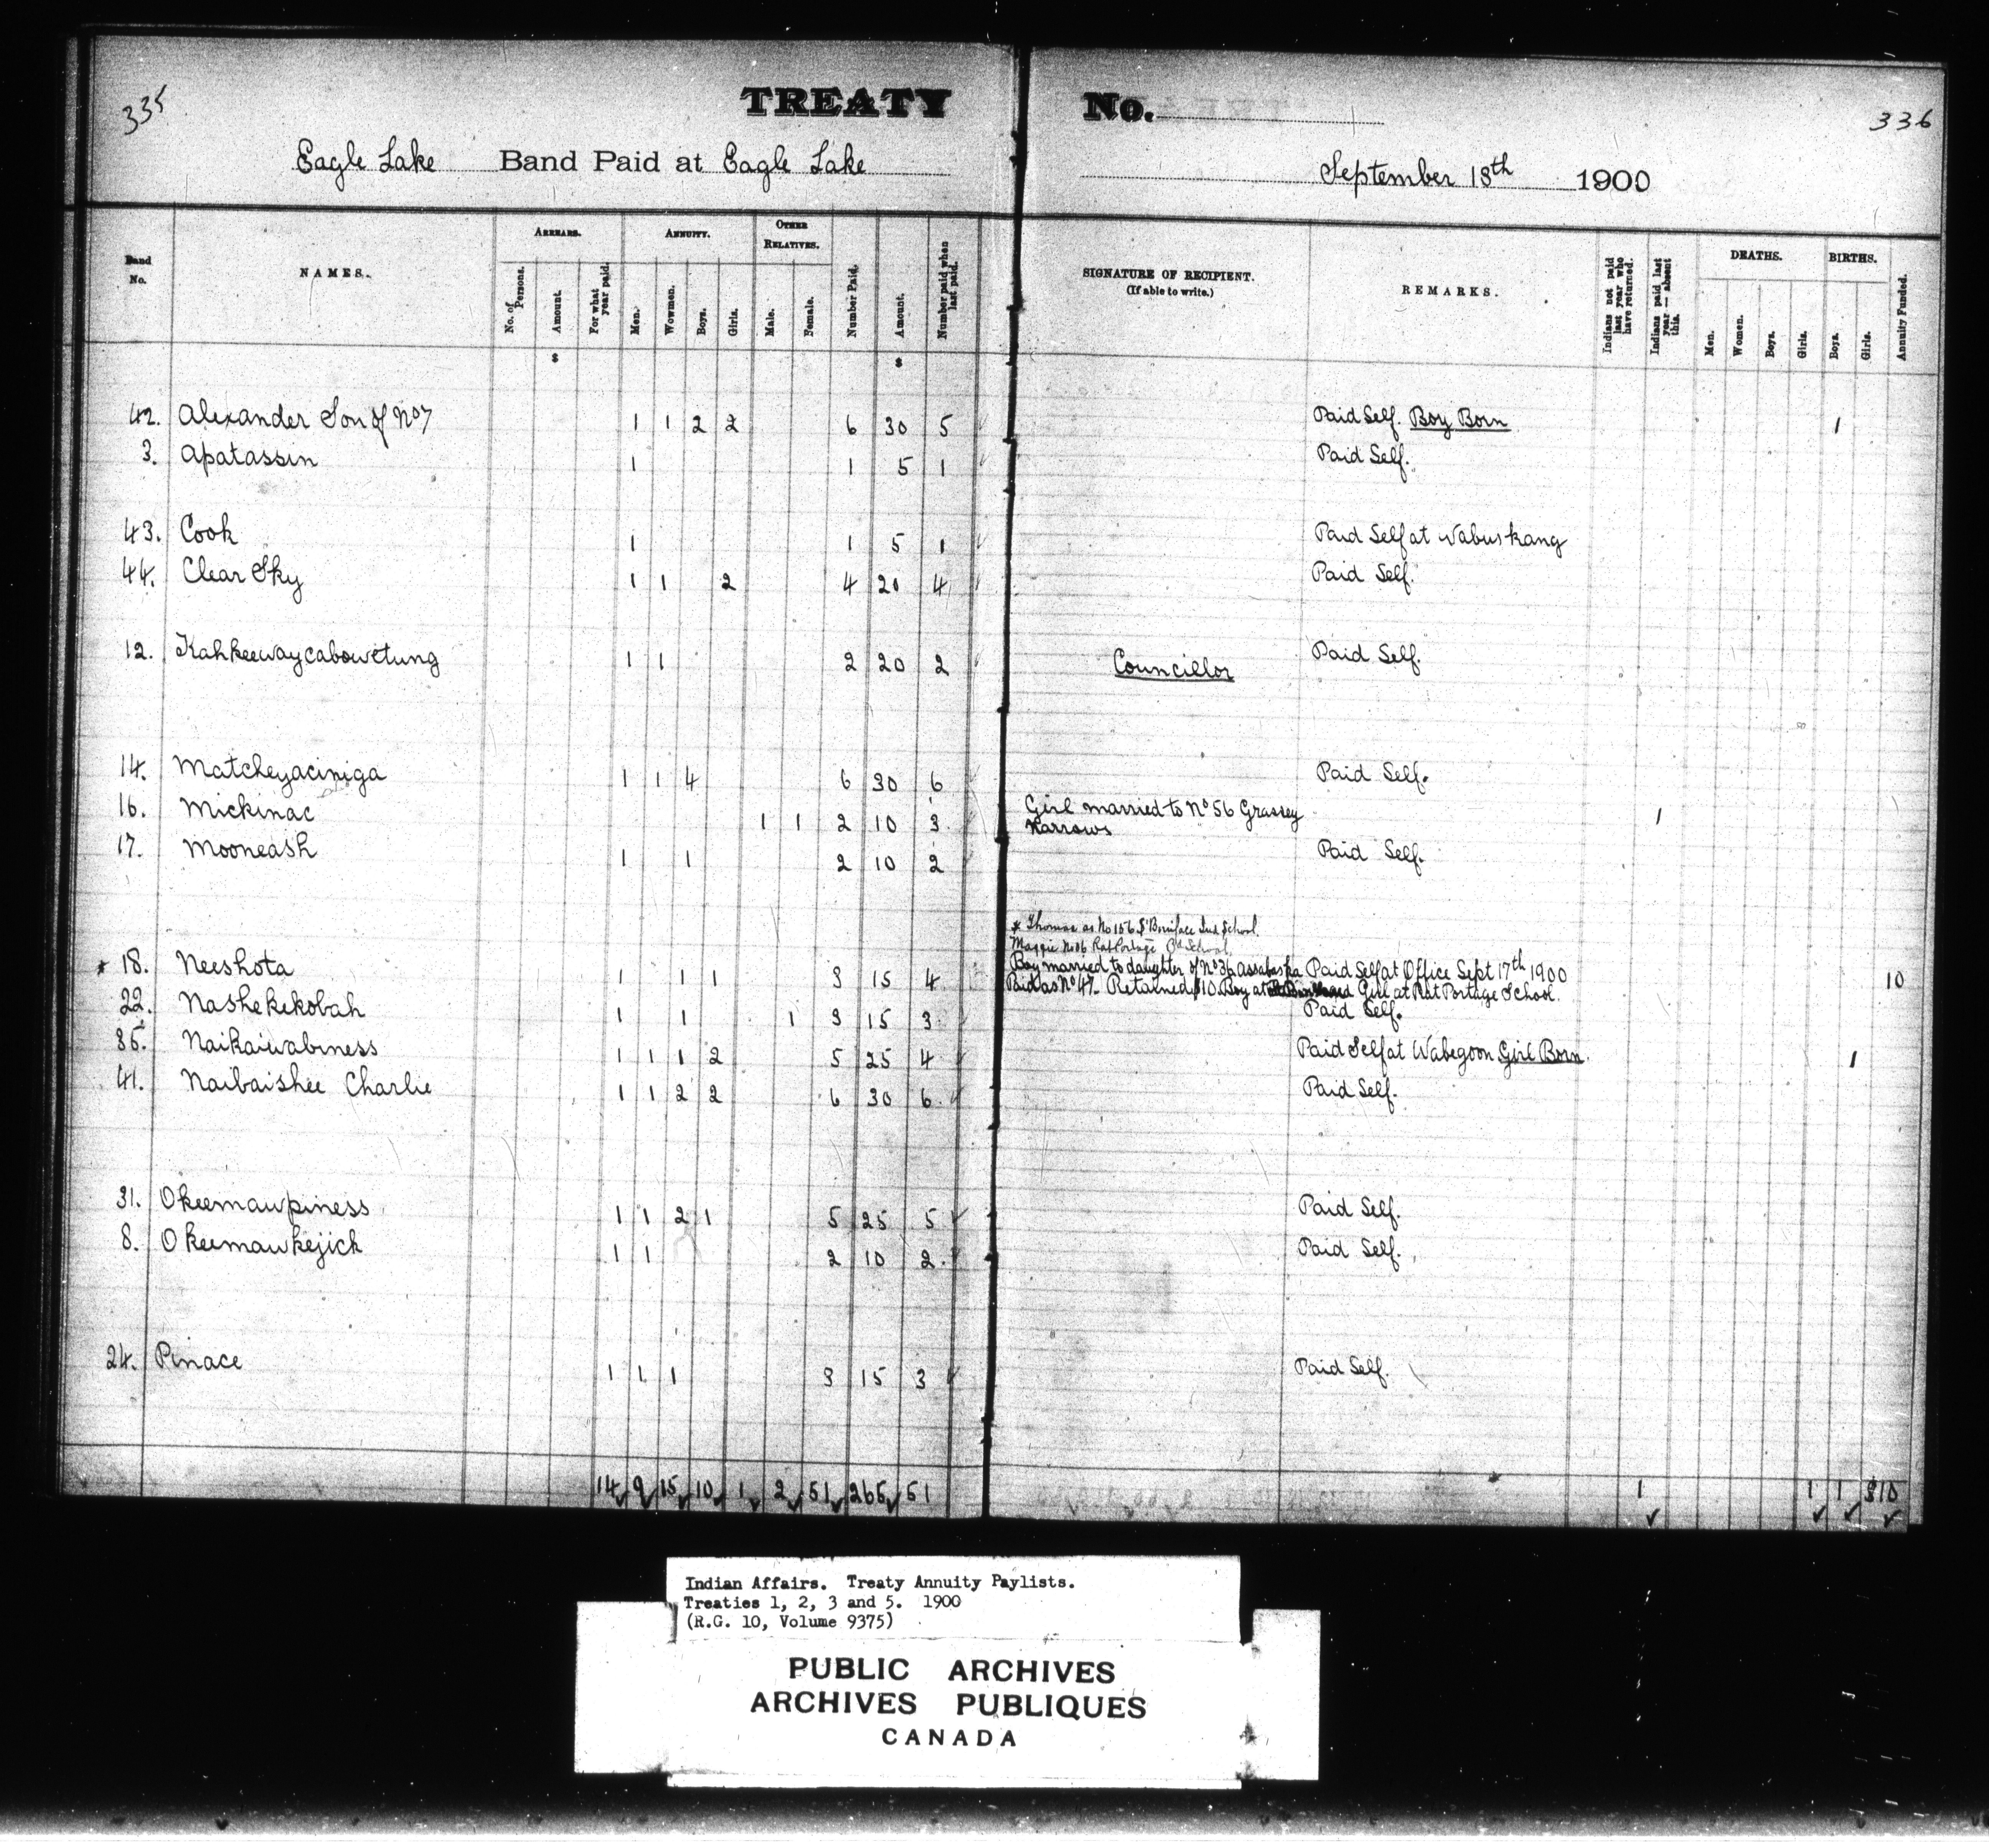 335
TREATY No.
336
Eagle Lake Band Paid at Eagle Lake September 18th 1900
Band No.
NAMES.
ARREARS.
No. of Persons.
Amount.
For what year paid.
ANNUITY.
Men.
Wowmen.
Boys.
Girls.
OTHER RELATIVES.
Male.
Female.
Number Paid.
Amount.
Number paid when last paid.
SIGNATURE OF RECIPIENT.
(If able to write.)
REMARKS.
Indians not paid last year who have returned.
Indians paid last year — absent this.
DEATHS.
Men.
Women.
Boys.
Girls.
BIRTHS.
Boys.
Girls.
Annuity Funded.
$ $
42. Alexander Son of No 7 1 1 2 2 6 30 5 Paid Self. Boy Born 1
3. Apatassin 1 1 5 1 Paid Self.
43. Cook 1 1 5 1 Paid Self at Wabuskang
44. Clear Sky 1 1 2 4 20 4 Paid Self.
12. Kahkeewaycabowetung 1 1 2 20 2 Councillor Paid Self.
14. Matcheyaciniga 1 1 4 6 30 6 Paid Self.
16. Mickinac 1 1 2 10 3 Girl married to No 56 Grassey Narrows 1
17. Mooneash 1 1 2 10 2 Paid Self.
* Thomas as No 156 St Boniface Ind School.
Maggie No 86 Rat Portage School
* 18. Neeshota 1 1 1 3 15 4 Boy married to daughter of No 36 Assabaska Paid Self at Office Sept 17th 1900 10
Paid as No 47. Retained $10 Boy at Girl at Rat Portage School.
22. Nashekekobah 1 1 1 3 15 3 Paid Self.
35. Naikaiwabiness 1 1 1 2 5 25 4 Paid Self at Wabegoon Girl Born. 1
41. Naibaishee Charlie 1 1 2 2 6 30 6 Paid Self.
31. Okeemawpiness 1 1 2 1 5 25 5 Paid Self.
8. Okeemawkejick 1 1 2 10 2 Paid Self.
24. Pinace 1 1 1 3 15 3 Paid Self.
14 9 15 10 1 2 51 265 51 1 1 1 $10
Indian Affairs. Treaty Annuity Paylists.
Treaties 1, 2, 3 and 5. 1900
(R.G. 10, Volume 9375)
PUBLIC ARCHIVES
ARCHIVES PUBLIQUES
CANADA